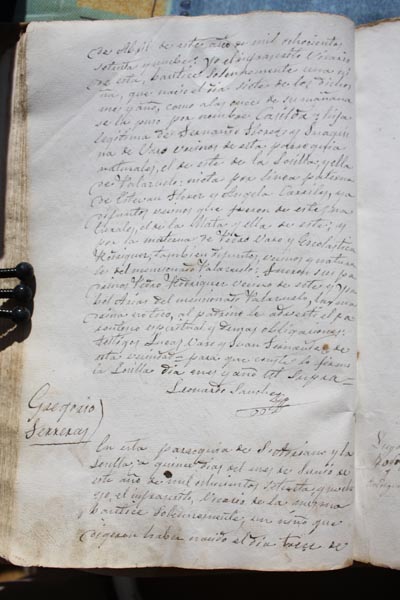 de Abril de este año de mil ochocientos
setenta y nueve: Yo el infrascrito Vicario
de esta, bauticé solemnemente una ni-
ña, que nació el día siete de los dichos
mes y año, como a las once de su mañana
se la puso por nombre Casilda; hija
legítima de Fernando Florez y Joaqui-
na de Varo vecinos de esta parroquia
naturales, el de este de la Losilla, y ella
de Palazuelo: nieta por línea paterna
de Estevan Florez y Angela
difuntos vecinos que fueron de este, na-
turales, el de la Mata y ella de este; y
por la materna de Pedro Varo y Escolástica
Rodriguez, tambien difuntos, vecinos y natura-
les del mencionado Palazuelo; fueron sus pa-
drinos Pedro Rodriguez vecino de este y
del mencionado Palazuelo, la
al padrino le advertí el pa-
rentesco espiritual y demas obligaciones:
testigos Lucas Varo y Juan Fernandez de
esta vecindad = para que conste lo firmo
en Losilla dia mes y año ut supra =
Leonardo Sanchez
Gregorio
Ferreras
En esta parroquia de S. Adriano y la
Losilla, a quince dias del mes de Junio de
este año de mil ochocientos setenta y nueve
yo, el infrascrito, Vicario de la misma
bauticé solemnemente, un niño que
digeron haber nacido el día trece de